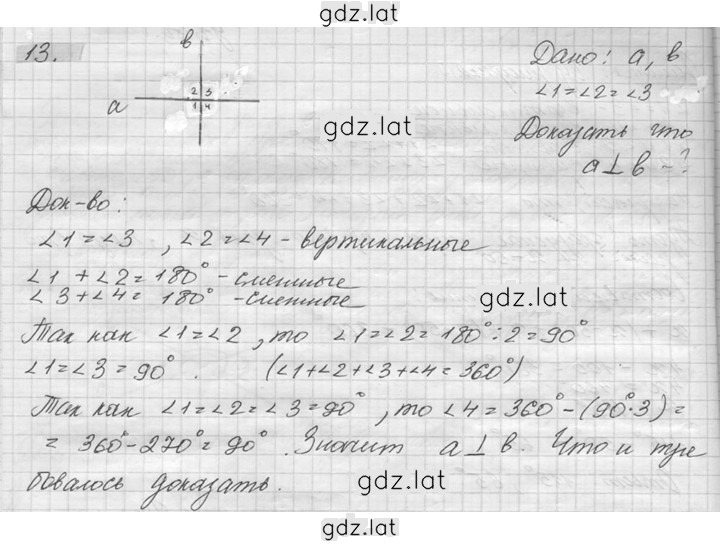 gdz.lat
13.
в
Дано: а, в
2 3
а
1 4
∠1=∠2=∠3
gdz.lat
gdz.lat
Доказать что
а⊥в -?
Док-во:
∠1=∠3 , ∠2=∠4 - вертикальные
∠1+∠2=180° - смежные
∠3+∠4= 180° - смежные
gdz.lat
Так как ∠1=∠2, то ∠1=∠2=180°:2=90°
∠1=∠3=90°. (∠1+∠2+∠3+∠4=360°)
Так как ∠1=∠2=∠3=90°, то ∠4=360°-(90°·3)=
= 360°-270°=90°. Значит а⊥в. Что и тре
бовалось доказать.
gdz.lat
gdz.lat